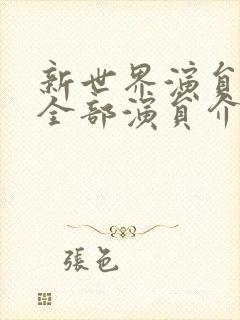 新世界演员
全部演員介
張色